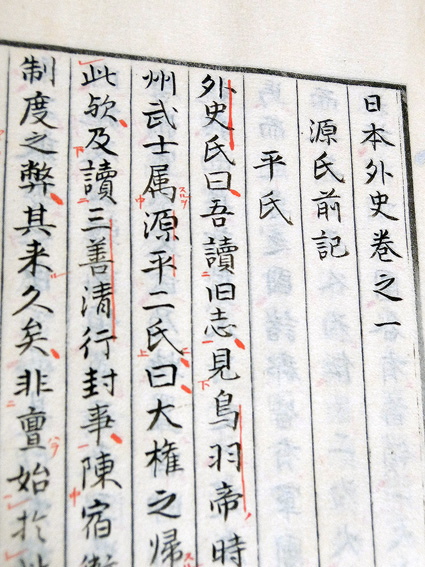 日本外史卷之一
源氏前記
平氏
外史氏曰吾讀旧志見鳥羽帝時
州武士属源平二氏曰大權之歸
此欤及讀三善清行封事陳宿衛
制度之弊其来久矣非亶始於